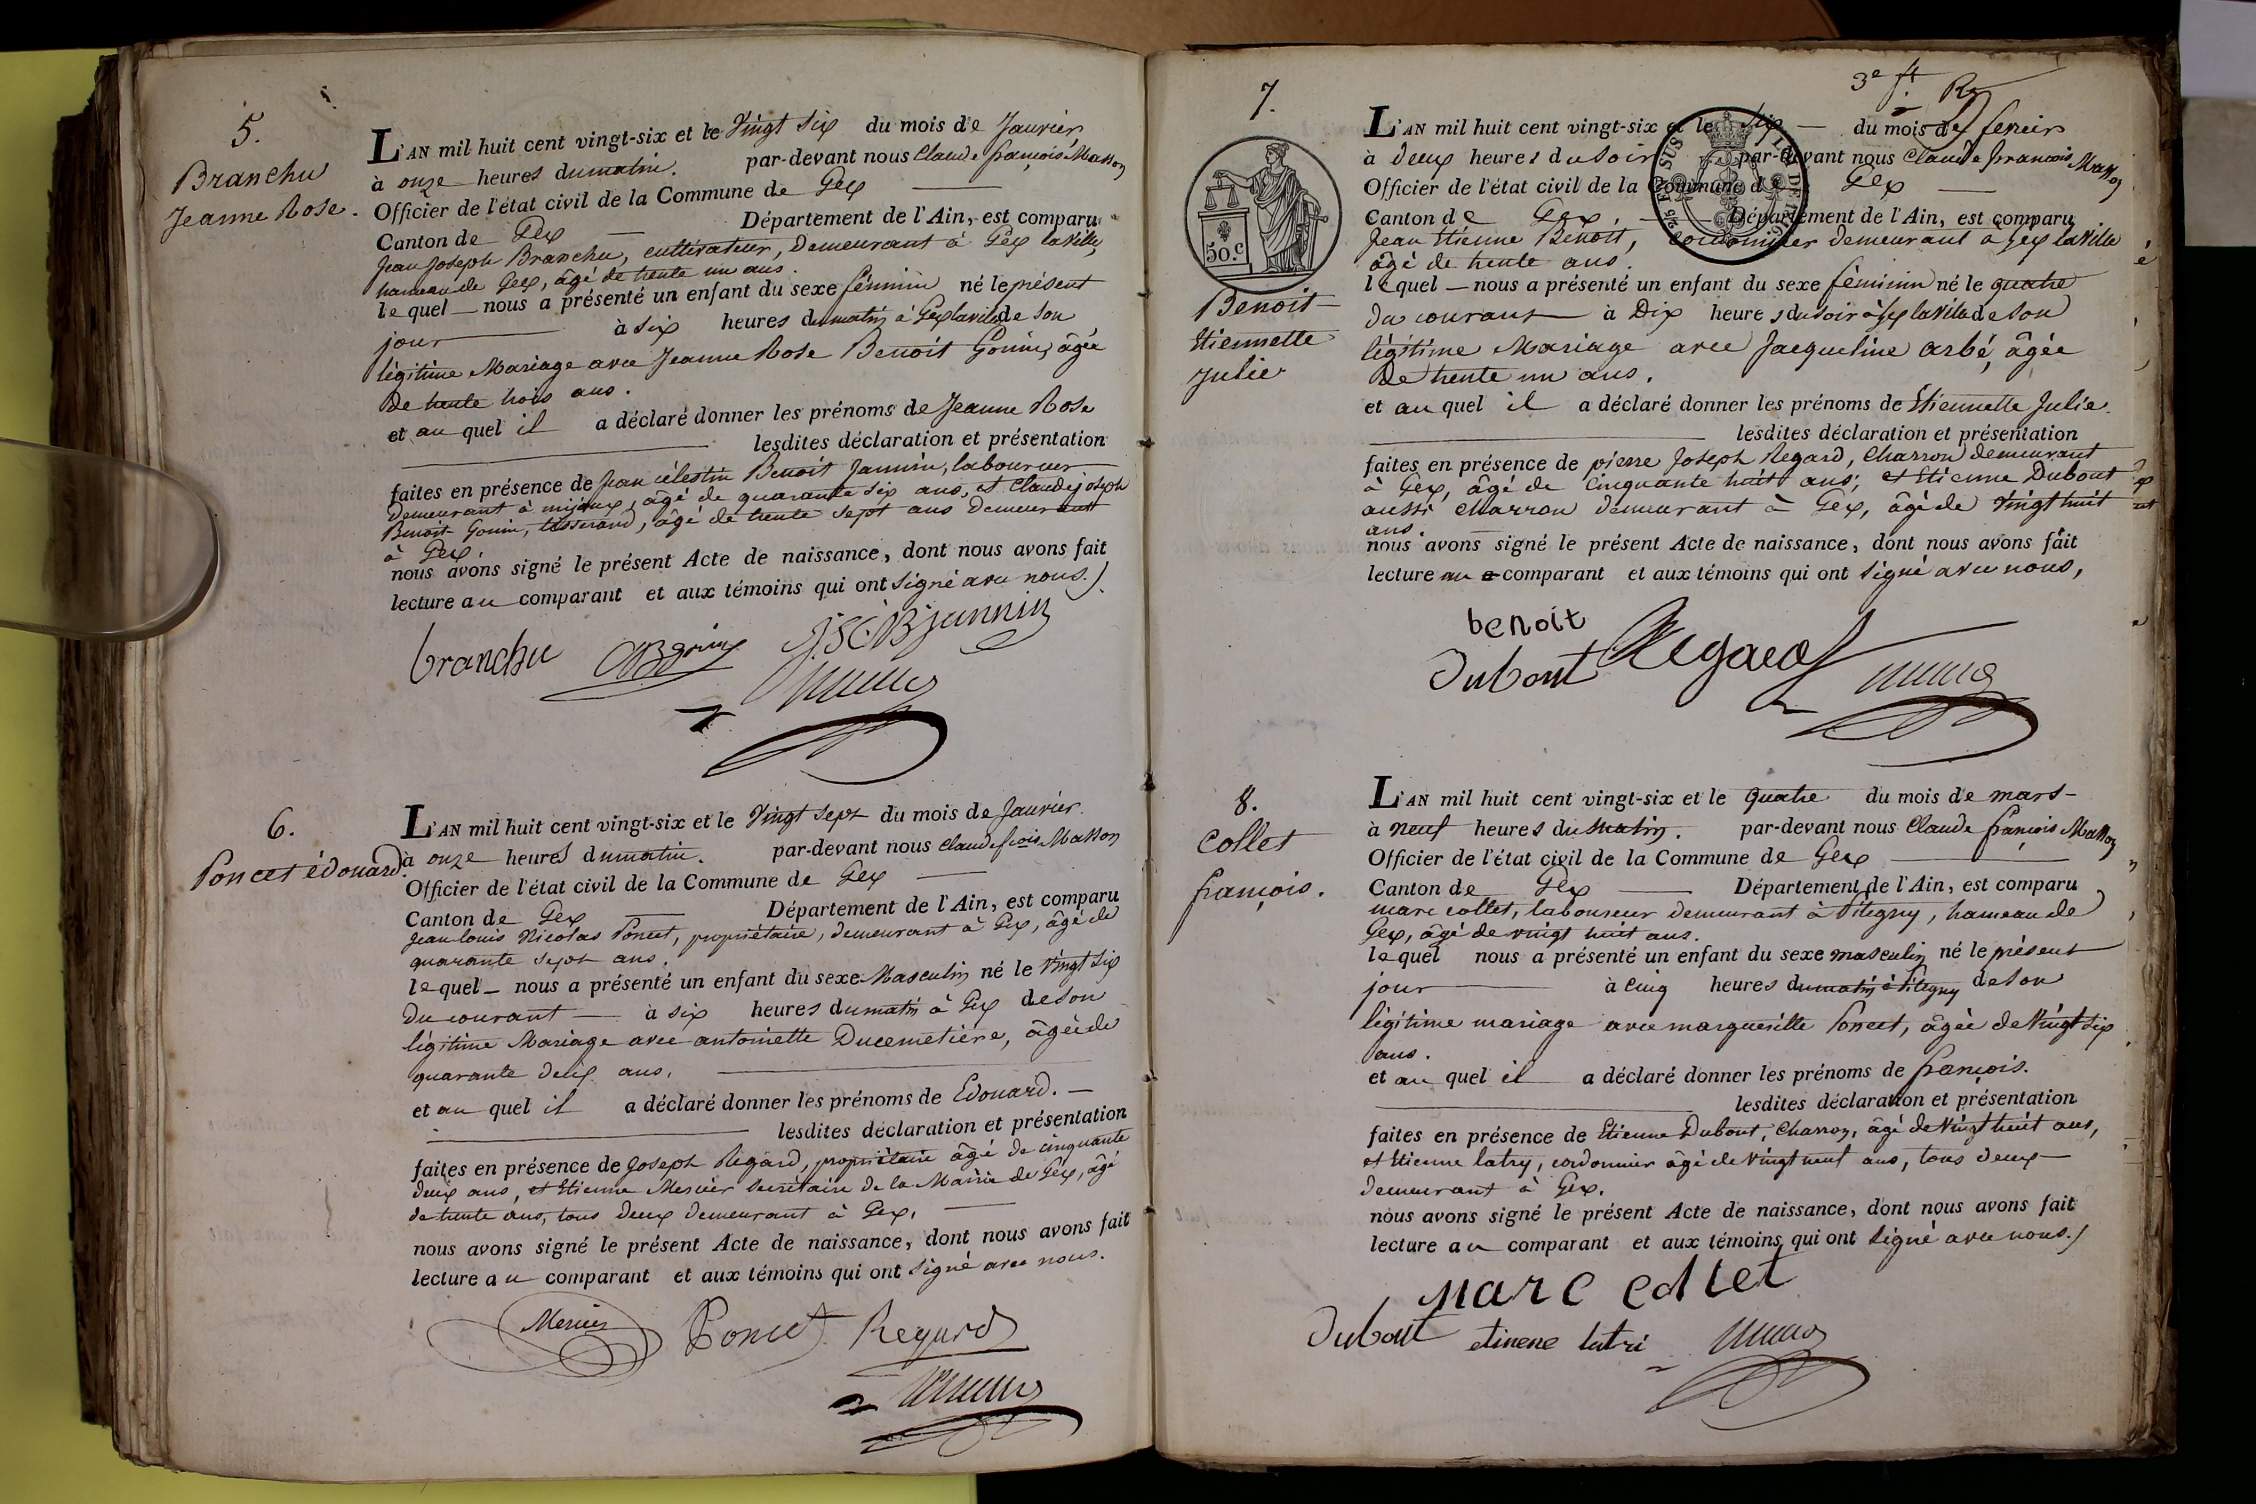 5.
Branchu
Jeanne Rose.
L'AN mil huit cent vingt-six et le Vingt Six du mois de Janvier
à onze heures du matin. par-devant nous Claude françois Masson
Officier de l'état civil de la Commune de Gex
Canton de Gex Département de l'Ain, est comparu
Jean Joseph Branchu, cultivateur, demeurant à Gex laville,
hameau de Gex, âgé de trente un ans.
le quel nous a présenté un enfant du sexe féminin né le présent
jour à six heures du matin à Gex laville de Son
légitime Mariage avec Jeanne Rose Benoit Gonin, âgée
de trente trois ans.
et au quel il a déclaré donner les prénoms de Jeanne Rose
lesdites déclaration et présentation
faites en présence de Jean célestin Benoit Jannin, laboureur
demeurant à mijoux, âgé de quarante six ans, et Claude joseph
Benoit Gonin, tisserand, âgé de trente sept ans demeurant
à Gex.
nous avons signé le présent Acte de naissance, dont nous avons fait
lecture au comparant et aux témoins qui ont signé avec nous.
branchu
6.
Poncet édouard.
L'AN mil huit cent vingt-six et le Vingt Sept du mois de Janvier.
à onze heures du matin. par-devant nous Claude fçois Masson
Officier de l'état civil de la Commune de Gex
Canton de Gex Département de l'Ain, est comparu
Jean louis Nicolas Poncet, propriétaire, demeurant à Gex, âgé de
quarante sept ans.
le quel nous a présenté un enfant du sexe Masculin né le Vingt Six
du courant à six heures du matin à Gex de Son
légitime Mariage avec antoinette Ducemetière, âgée de
quarante deux ans.
et au quel il a déclaré donner les prénoms de Edouard.
lesdites déclaration et présentation
faites en présence de Joseph Regard, propriétaire âgé de cinquante
deux ans, et Etienne Mercier Secrétaire de la Mairie de Gex, âgé
de trente ans, tous deux demeurant à Gex.
nous avons signé le présent Acte de naissance, dont nous avons fait
lecture au comparant et aux témoins qui ont signé avec nous.
Mercier Poncet Regard
3e ft.
7.
50.c
Benoit
Etiennette
Julie
L'AN mil huit cent vingt-six et le Six du mois de fevrier
à deux heures du Soir par-devant nous Claude françois Masson
Officier de l'état civil de la Commune de Gex
Canton de Gex. Département de l'Ain, est comparu
Jean Etienne Benoit, cordonnier demeurant à Gex la Ville
âgé de trente ans.
le quel nous a présenté un enfant du sexe féminin né le quatre
du courant à Dix heures du soir à Gex la Ville de Son
légitime Mariage avec Jacqueline arbé, âgée
de trente un ans.
et au quel il a déclaré donner les prénoms de Etiennette Julie.
lesdites déclaration et présentation
faites en présence de pierre Joseph Regard, Charron demeurant
à Gex, âgé de Cinquante huit ans; et Etienne Dubout
aussi charron demeurant à Gex, âgé de Vingt huit
ans.
nous avons signé le présent Acte de naissance, dont nous avons fait
lecture au comparant et aux témoins qui ont signé avec nous,
benoit
Dubout Regard
8.
Collet
françois.
L'AN mil huit cent vingt-six et le quatre du mois de mars
à neuf heures du matin. par-devant nous Claude françois Masson
Officier de l'état civil de la Commune de Gex
Canton de Gex Département de l'Ain, est comparu
marc collet, laboureur demeurant à Pitegny, hameau de
Gex, âgé de vingt huit ans.
le quel nous a présenté un enfant du sexe masculin né le présent
jour à cinq heures du matin à Pitegny de Son
légitime mariage avec margueritte Poncet, âgée de Vingt Six
ans.
et au quel il a déclaré donner les prénoms de françois.
lesdites déclaration et présentation
faites en présence de Etienne Dubout, Charron, âgé de Vingt huit ans,
et Etienne latry, cordonnier âgé de Vingt neuf ans, tous deux
demeurant à Gex.
nous avons signé le présent Acte de naissance, dont nous avons fait
lecture au comparant et aux témoins qui ont signé avec nous.
Marc collet
Dubout etinene latri